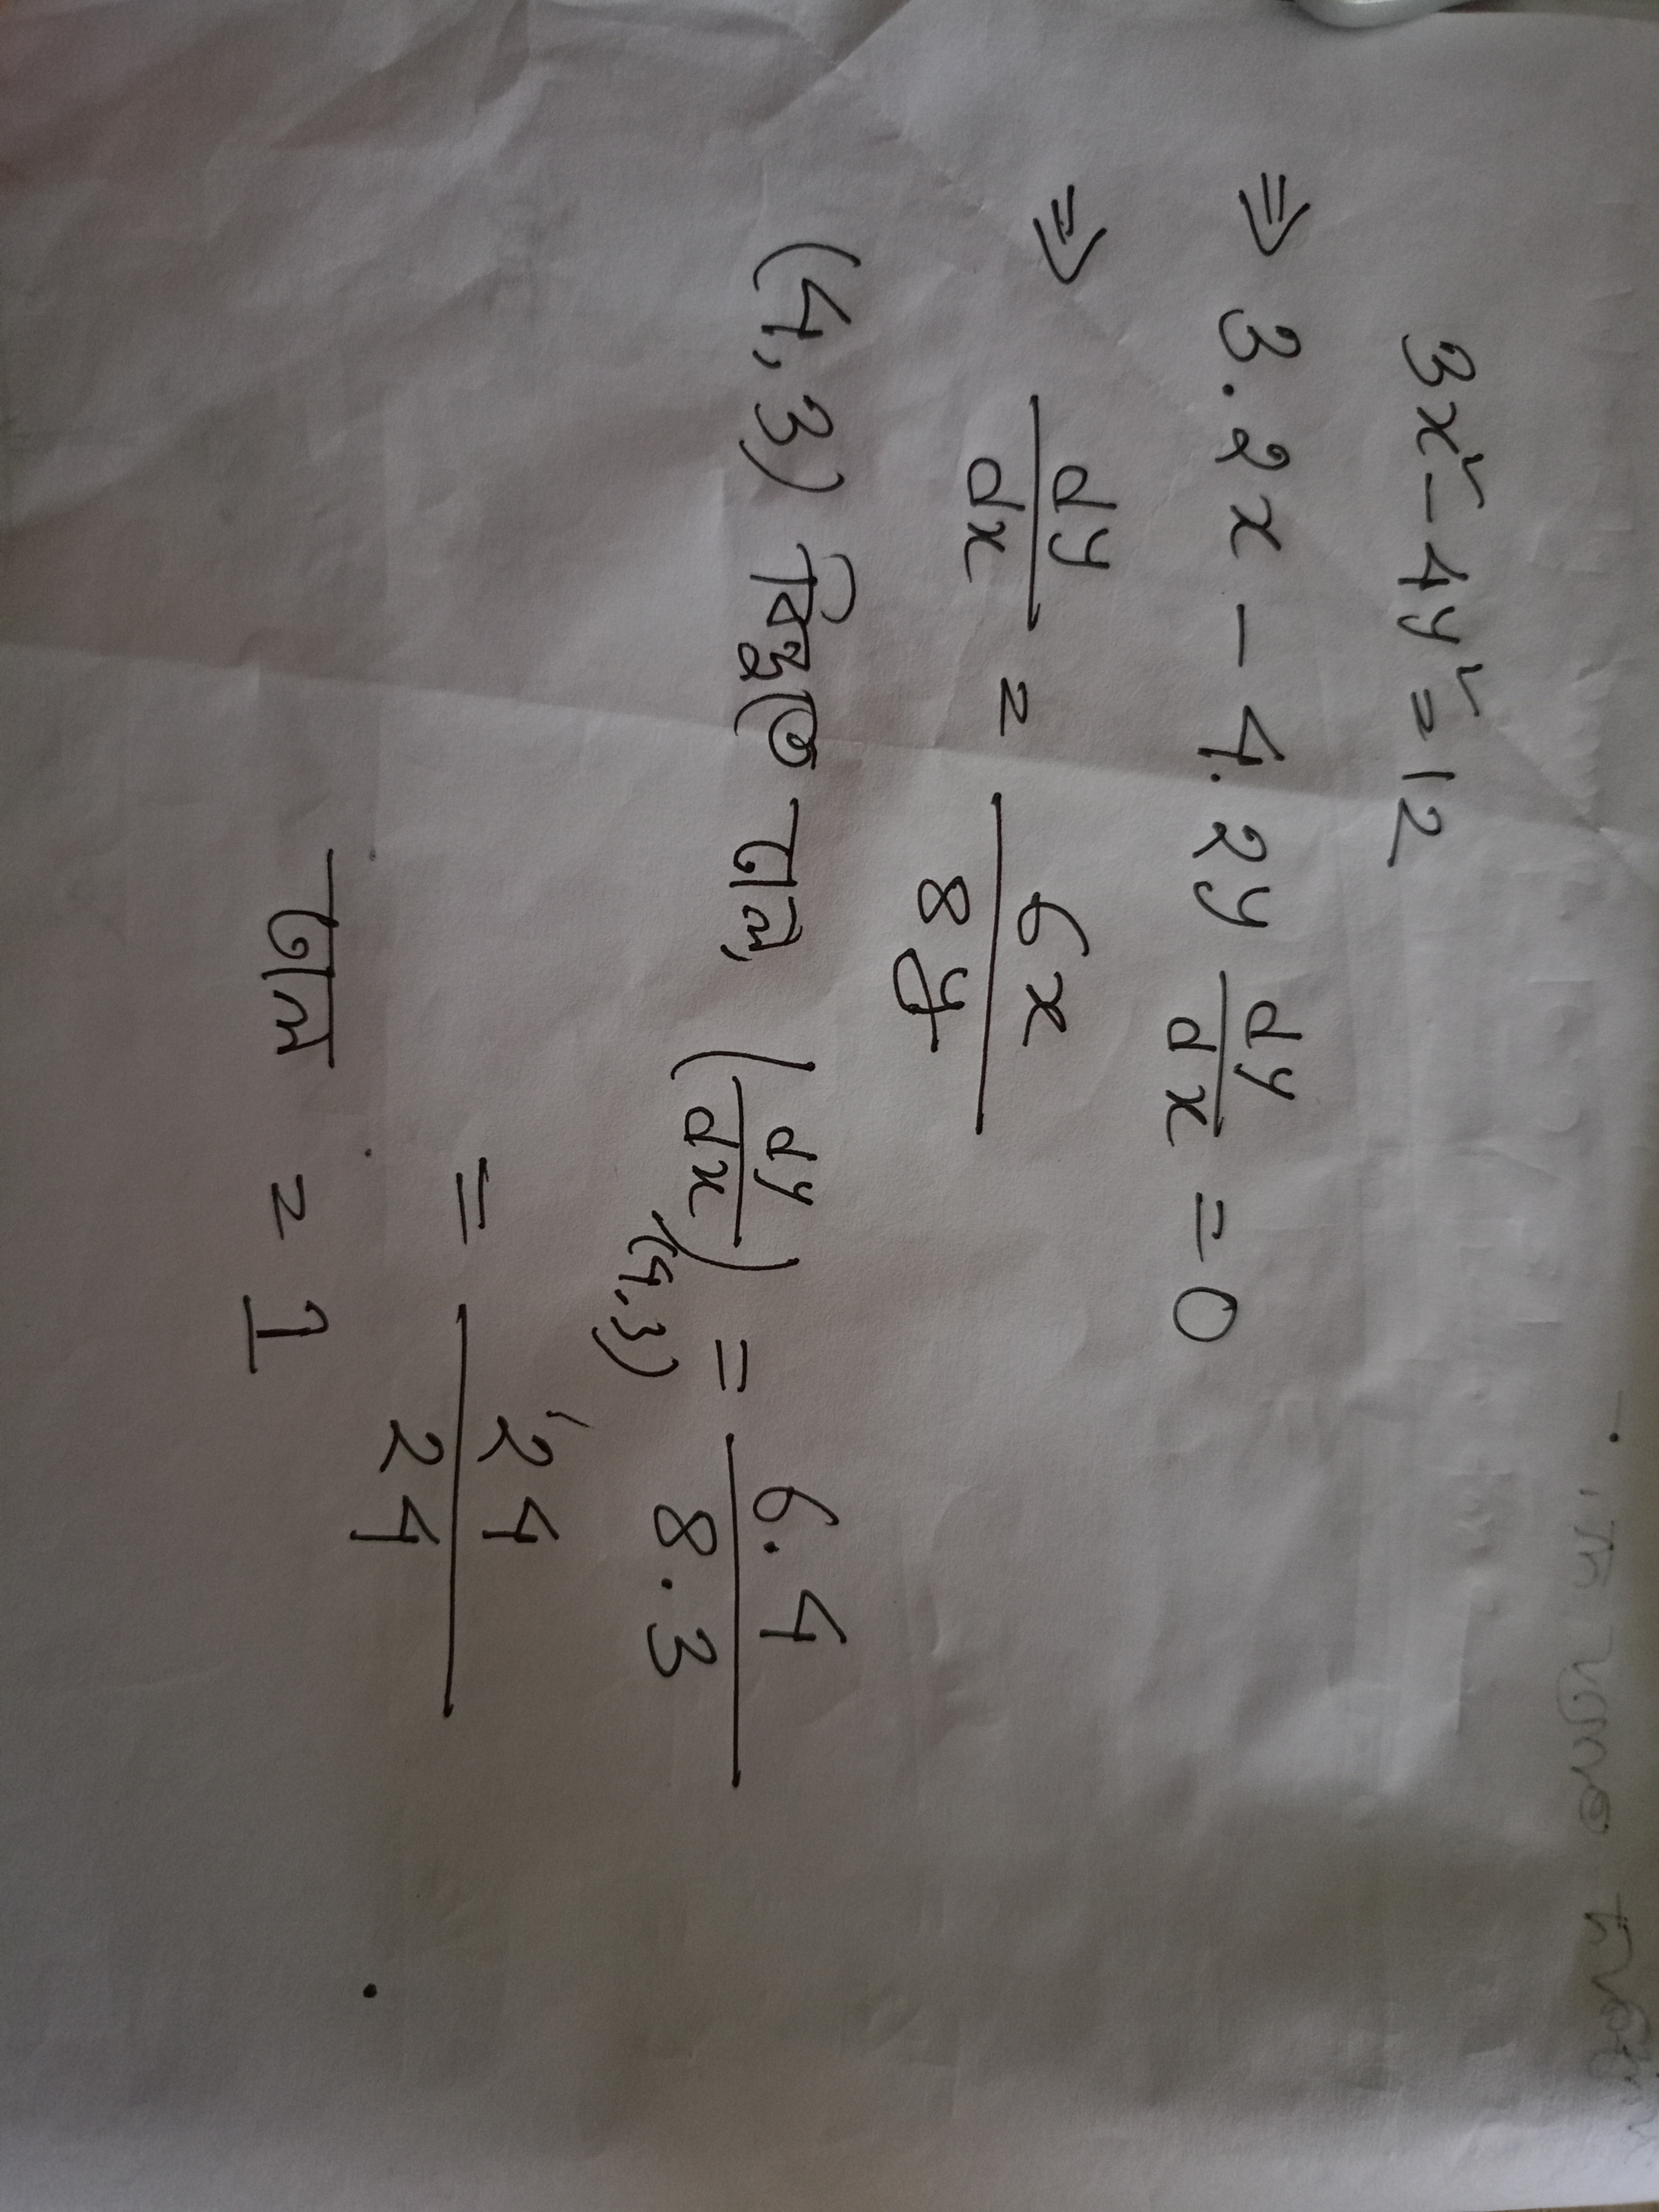 3x² - 4y² = 12
⇒ 3.2x - 4.2y dy/dx = 0
⇒ dy/dx = 6x/8y
(4,3) বিন্দুতে ঢাল, (dy/dx)(4,3) = 6.4/8.3
= 24/24
ঢাল = 1